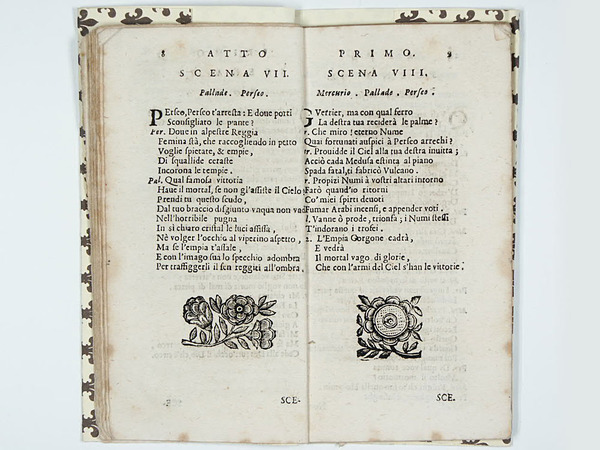 8 ATTO
SCENA VII.
Pallade. Perseo.
PErseo, Perseo t'arresta: E doue porti
Sconsigliato le piante?
Per. Doue in alpestre Reggia
Femina stà, che raccogliendo in petto
Voglie spietate, & empie,
Di squallide ceraste
Incorona le tempie.
Pal. Qual famosa vittoria
Haue il mortal, se non gl'assiste il Cielo?
Prendi tu questo scudo,
Dal tuo braccio disgiunto vnqua non vad
Nell'horribile pugna
In sì chiaro cristal le luci affissa,
Nè volger l'occhio al viperino aspetto,
Ma se l'empia t'assale,
E con l'imago sua lo specchio adombra
Per traffiggerli il sen reggiti all'ombra.
SCE-
PRIMO. 9
SCENA VIII.
Mercurio. Pallade. Perseo.
GVerrier, ma con qual ferro
La destra tua reciderà le palme?
r. Che miro? eterno Nume
Quai fortunati auspici à Perseo arrechi?
r. Prouidde il Ciel alla tua destra inuitta;
Acciò cada Medusa estinta al piano
Spada fatal, ti fabricò Vulcano.
r. Propizi Numi à vostri altari intorno
Farò quand'io ritorni
Co' miei spirti deuoti
Fumar Arabi incensi, e appender voti.
l. Vanne ò prode, trionfa; i Numi stessi
T'indorano i trofei.
2. L'Empia Gorgone cadrà,
E vedrà
Il mortal vago di glorie,
Che con l'armi del Ciel s'han le vittorie.
SCE.